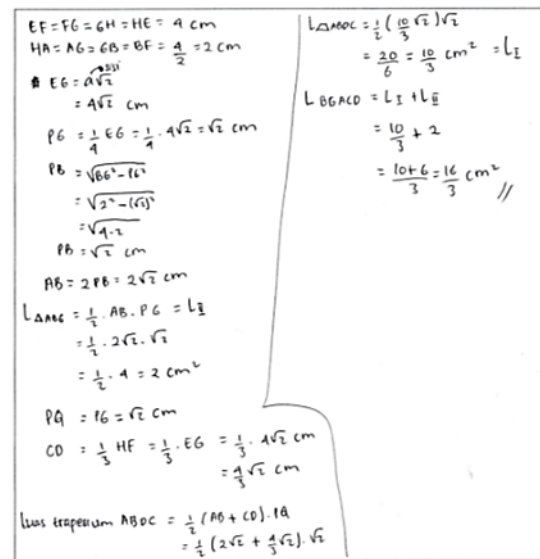 EF = FG = GH = HE = 4 cm
HA = AG = GB = BF = 4/2 = 2 cm
EG = a√2
= 4√2 cm
PG = 1/4 EG = 1/4 . 4√2 = √2 cm
PB = √BG² - PG²
= √2² - (√2)²
= √4-2
PB = √2 cm
AB = 2PB = 2√2 cm
L△ABG = 1/2 . AB . PG = LII
= 1/2 . 2√2 . √2
= 1/2 . 4 = 2 cm²
PQ = PG = √2 cm
CD = 1/3 HF = 1/3 . EG = 1/3 . 4√2 cm
= 4/3 √2 cm
Luas trapesium ABDC = 1/2 (AB + CD) . PQ
= 1/2 (2√2 + 4/3 √2) . √2
L△ABDC = 1/2 (10/3 √2) √2
= 20/6 = 10/3 cm² = LI
L BGACD = LI + LII
= 10/3 + 2
= 10+6/3 = 16/3 cm² //